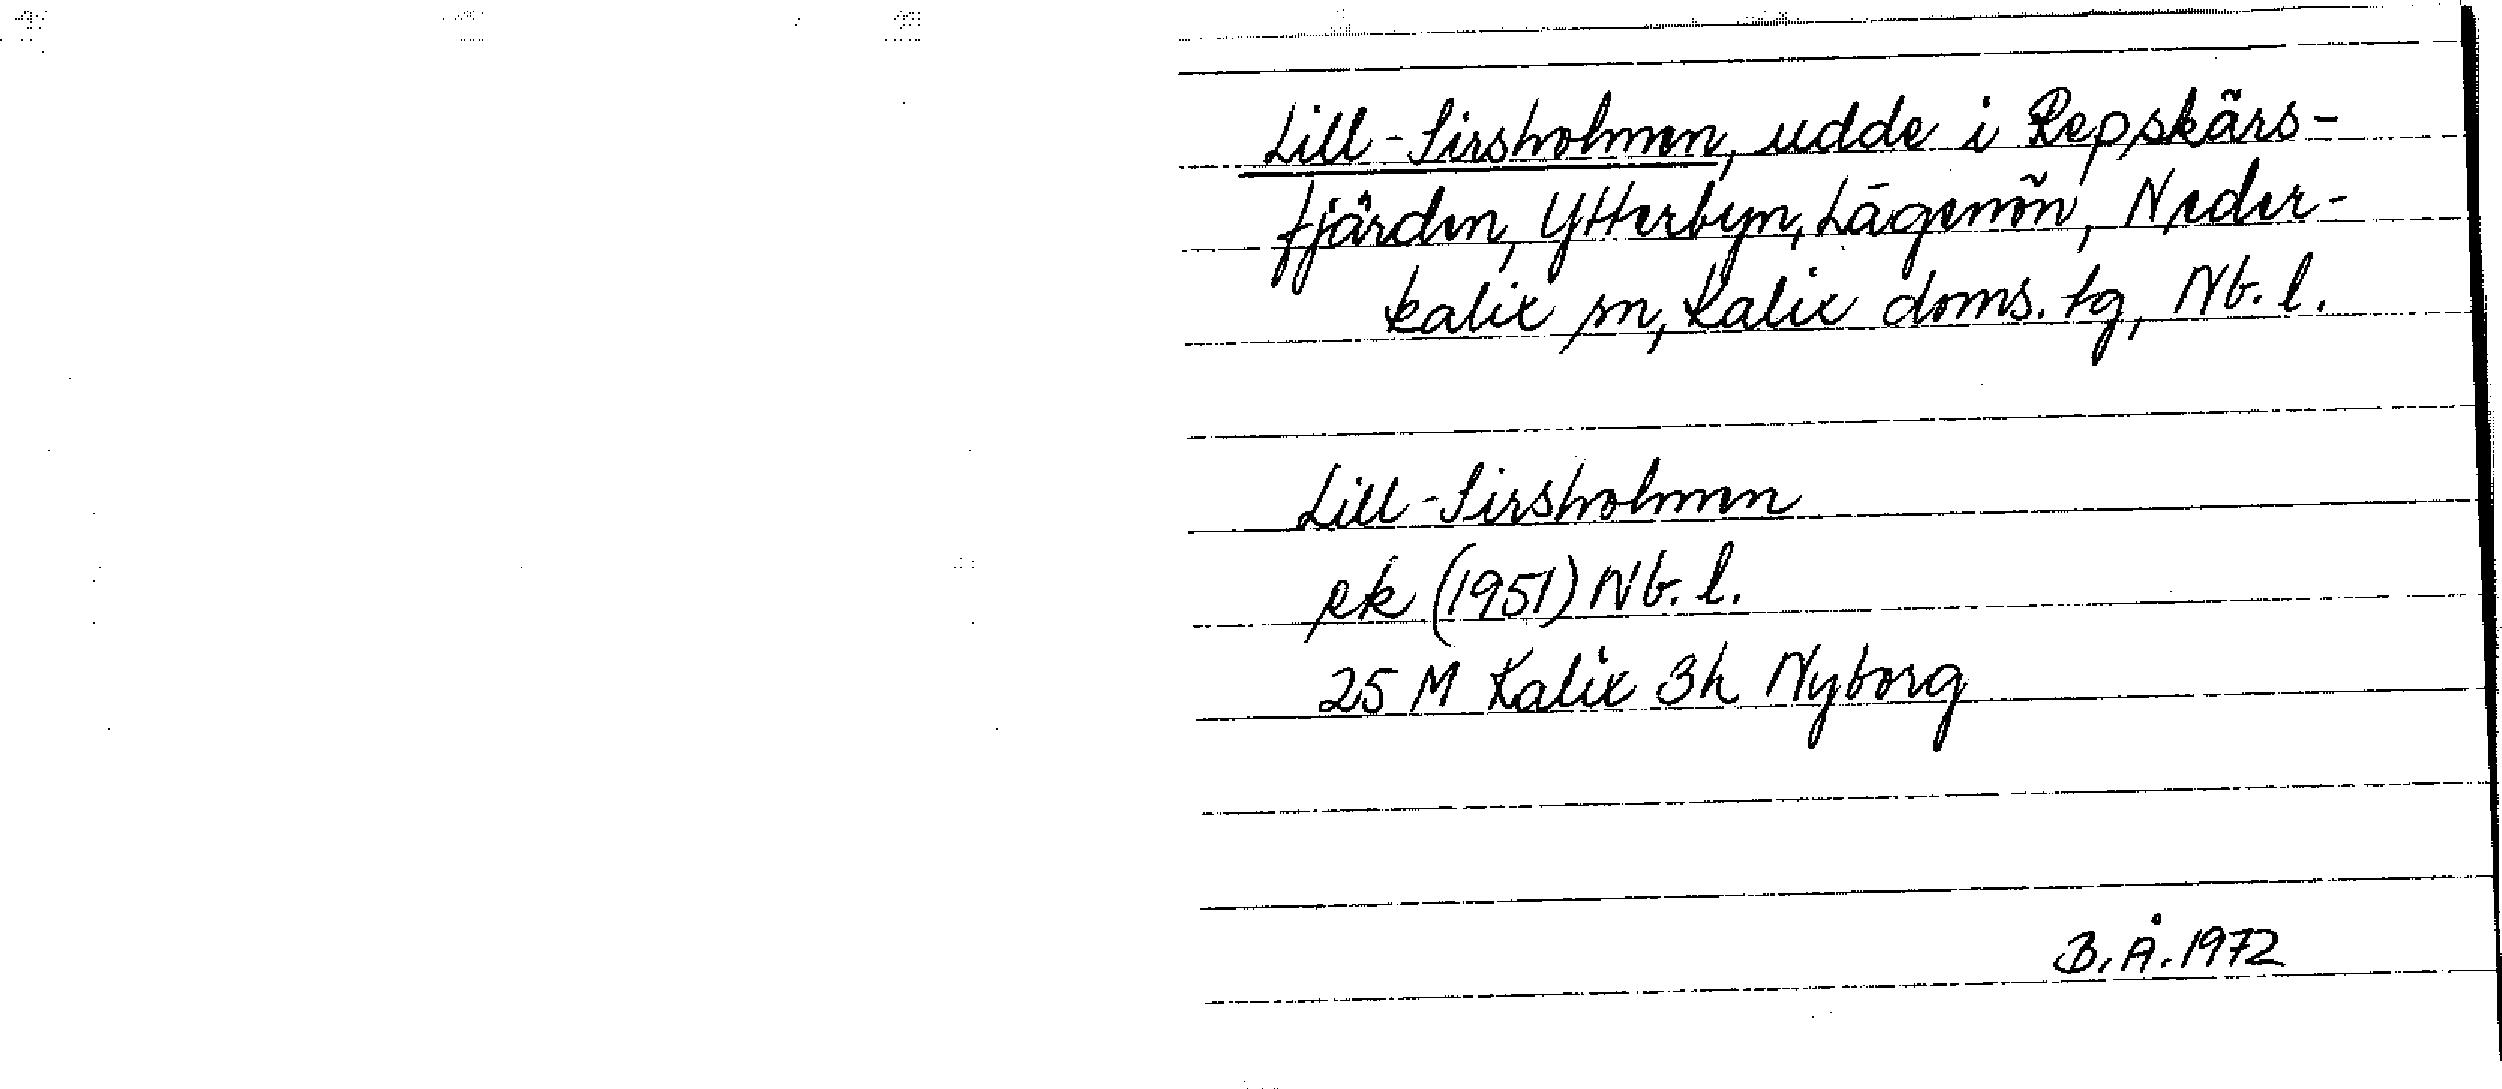 Lill-Sirsholmen, udde i Repskärs-
fjärden, Ytterbyn, Lägenön, Neder-
kalix sn, Kalix doms. tg, Nb. l.
Lill-Sirsholmen
ek (1951) Nb. l.
25 M Kalix 3h Nyborg
B. Å. 1972